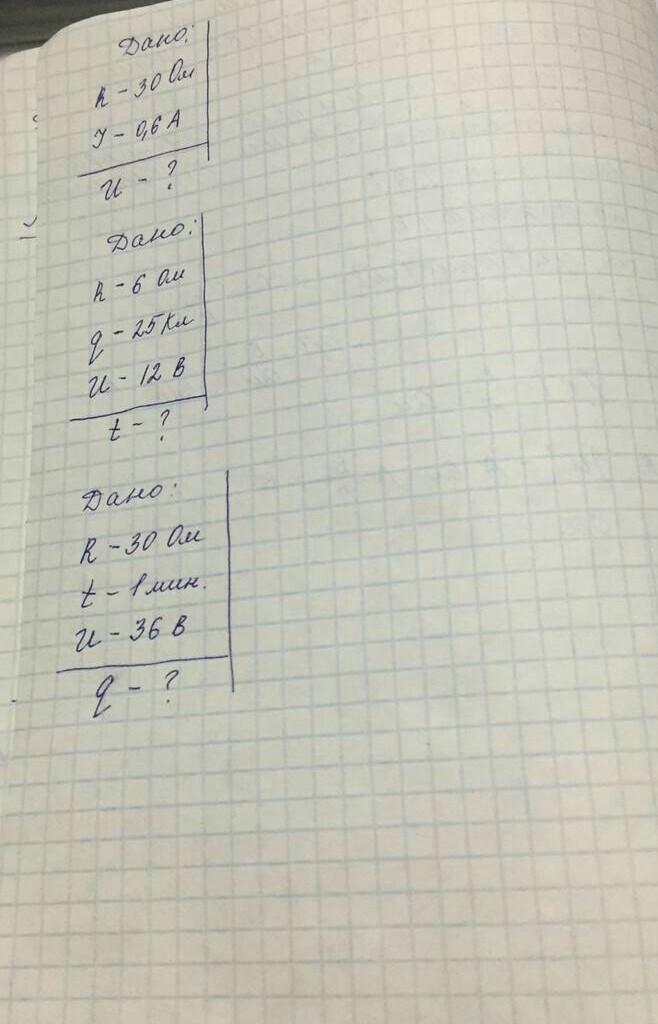 Дано:
R - 30 Ом
I - 0,6 А
U - ?
Дано:
R - 6 Ом
q - 25 Кл
U - 12 В
t - ?
Дано:
R - 30 Ом
t - 1 мин.
U - 36 В
q - ?